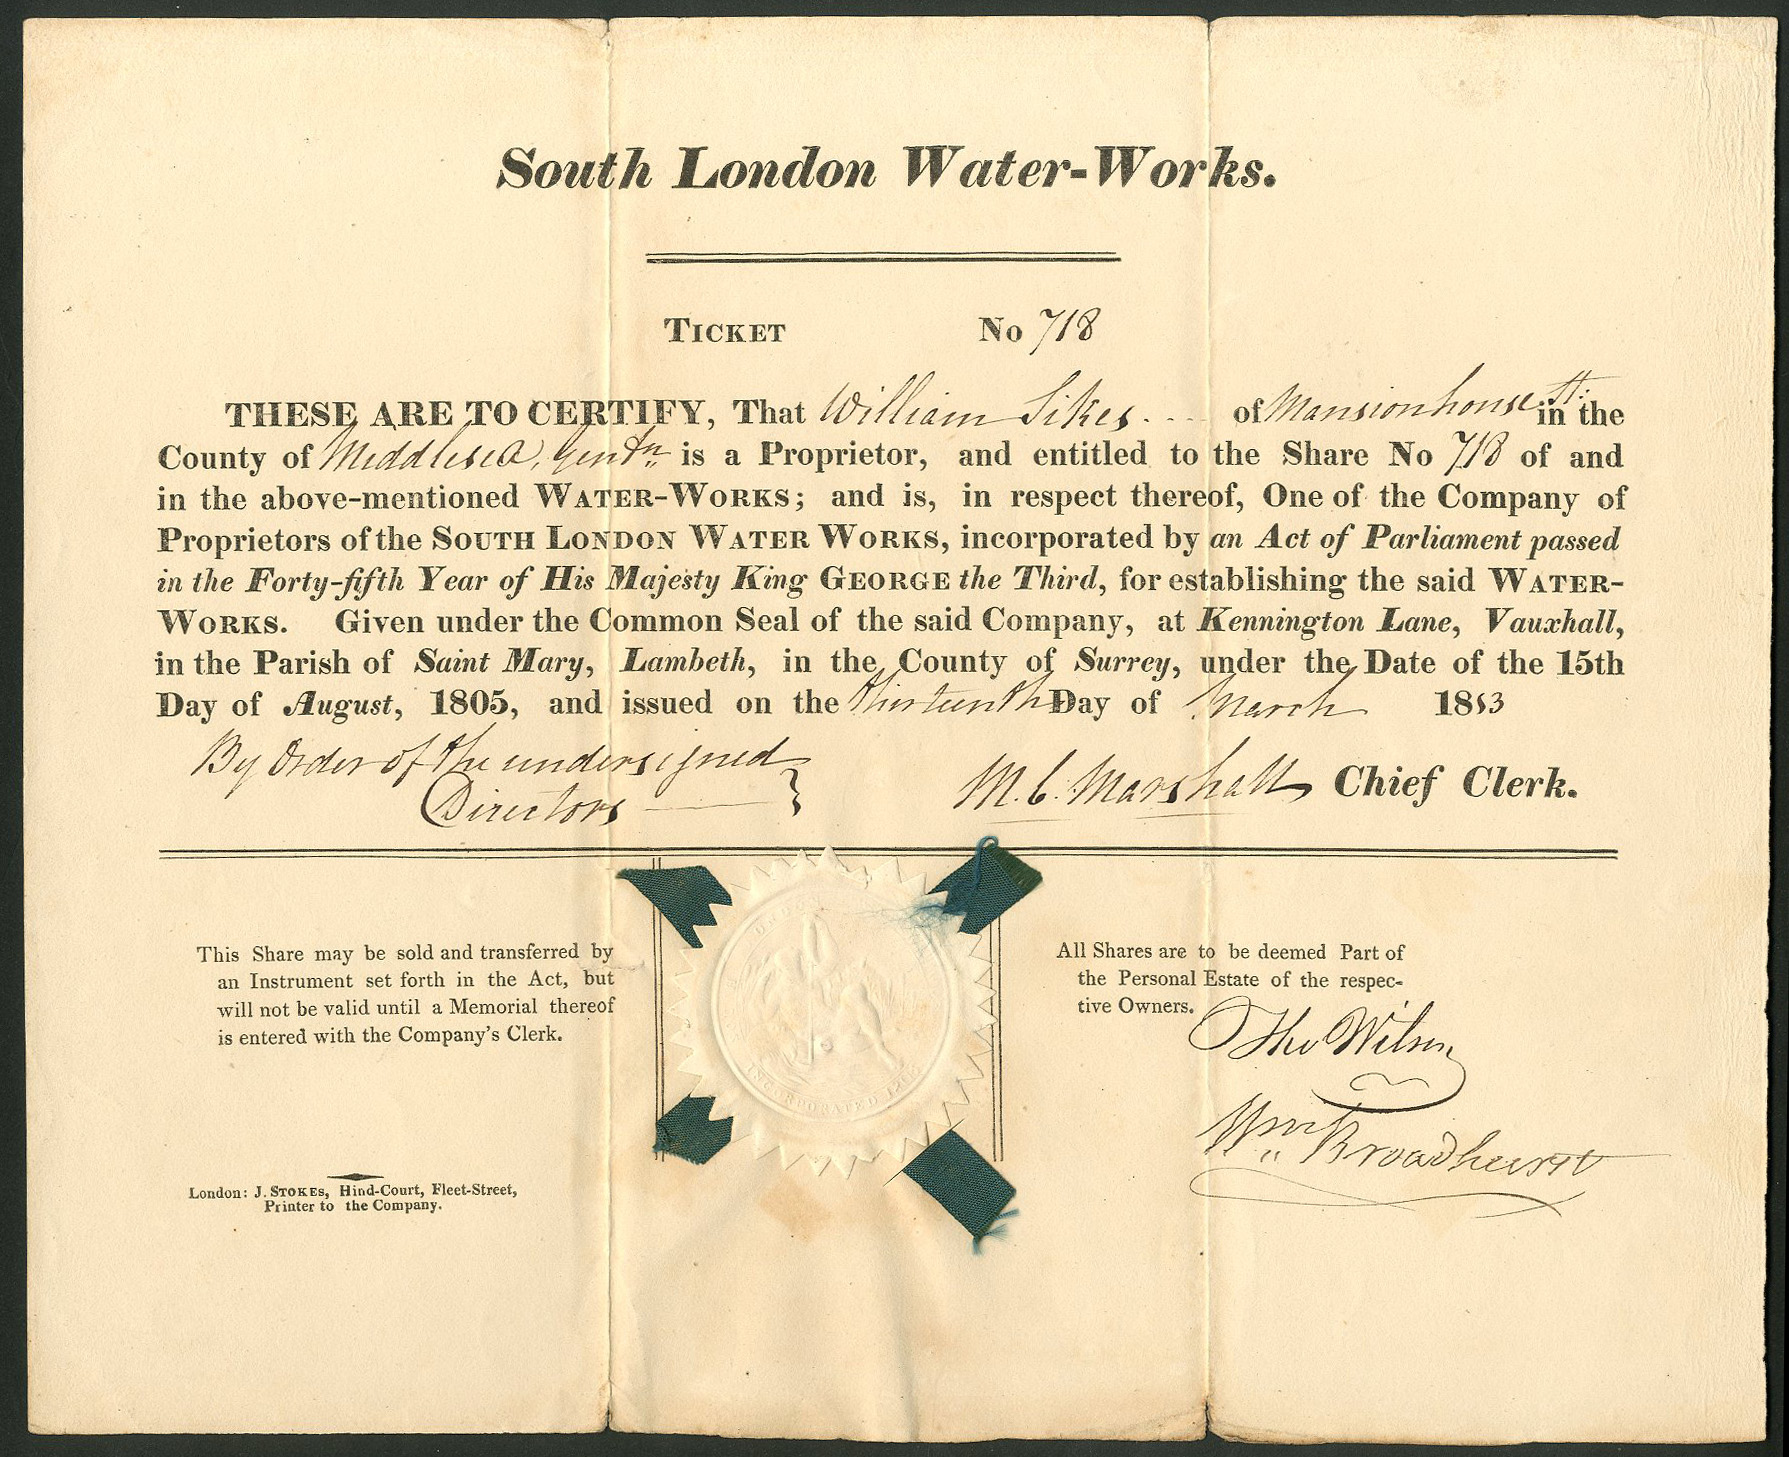 South London Water-Works.
TICKET No 718
THESE ARE TO CERTIFY, That William Sikes of Mansionhouse St: in the
County of Middlesex, Gentn is a Proprietor, and entitled to the Share No 718 of and
in the above-mentioned WATER-WORKS; and is, in respect thereof, One of the Company of
Proprietors of the SOUTH LONDON WATER WORKS, incorporated by an Act of Parliament passed
in the Forty-fifth Year of His Majesty King GEORGE the Third, for establishing the said WATER-
WORKS. Given under the Common Seal of the said Company, at Kennington Lane, Vauxhall,
in the Parish of Saint Mary, Lambeth, in the County of Surrey, under the Date of the 15th
Day of August, 1805, and issued on the thirteenth Day of March 1813
By Order of the undersigned
Directors
M. C. Marshall Chief Clerk.
This Share may be sold and transferred by
an Instrument set forth in the Act, but
will not be valid until a Memorial thereof
is entered with the Company's Clerk.
London: J. STOKES, Hind-Court, Fleet-Street,
Printer to the Company.
LONDON
INCORPORATED 1805
All Shares are to be deemed Part of
the Personal Estate of the respec-
tive Owners.
Tho Wilson
Wm Broadhurst